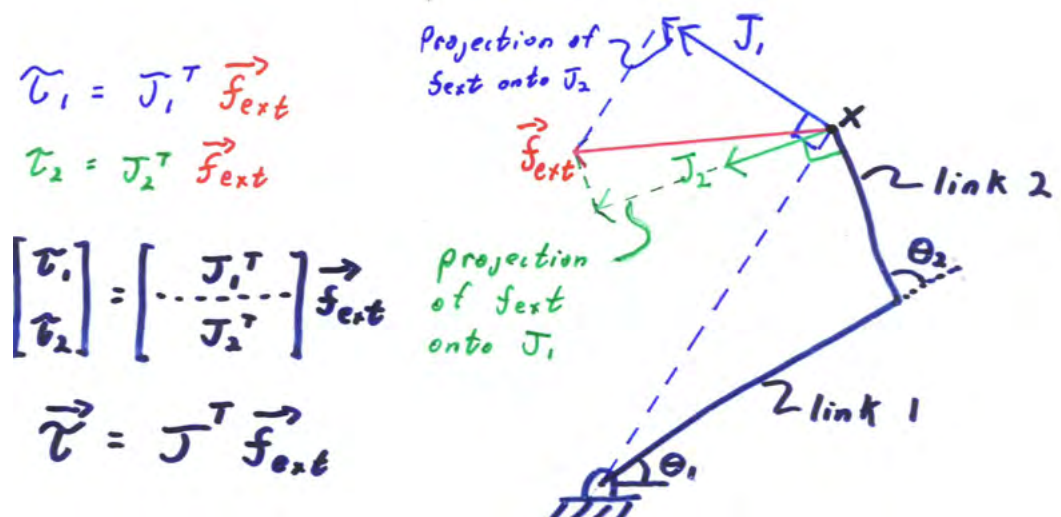 τ₁ = J₁ᵀ f⃗ext
τ₂ = J₂ᵀ f⃗ext
[τ₁ τ₂] = [J₁ᵀ J₂ᵀ] f⃗ext
τ⃗ = Jᵀ f⃗ext
Projection of
fext onto J₂
J₁
X
f⃗ext
J₂
link 2
θ₂
projection
of fext
onto J₁
link 1
θ₁